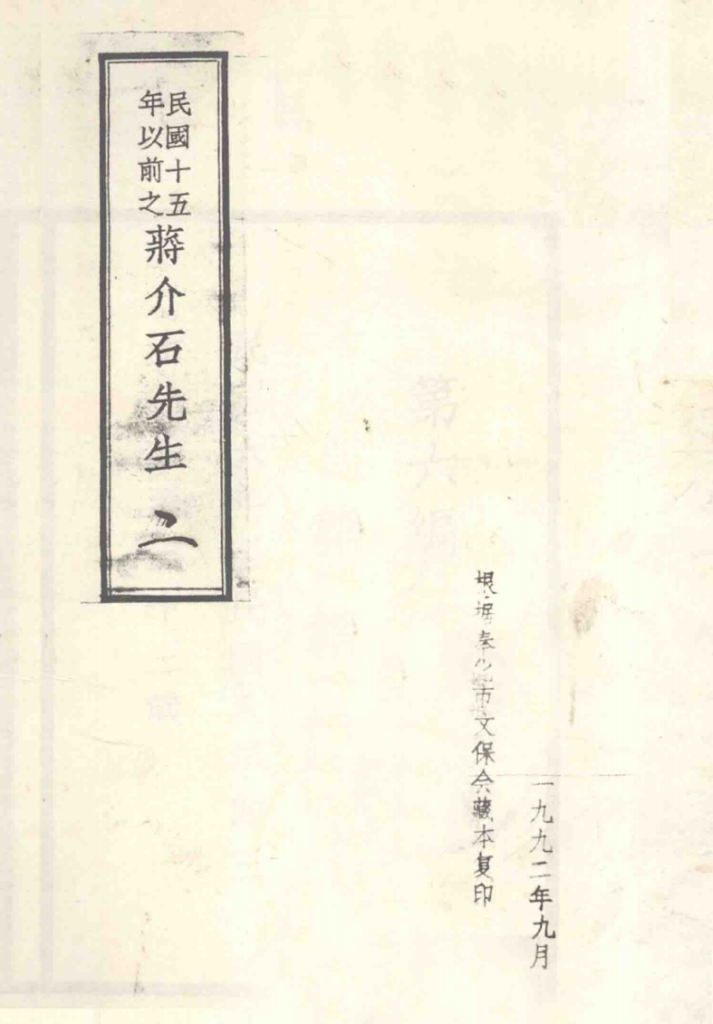 民國十五
年以前之
蔣介石先生 二
根据奉化市文保会藏本复印
一九九二年九月